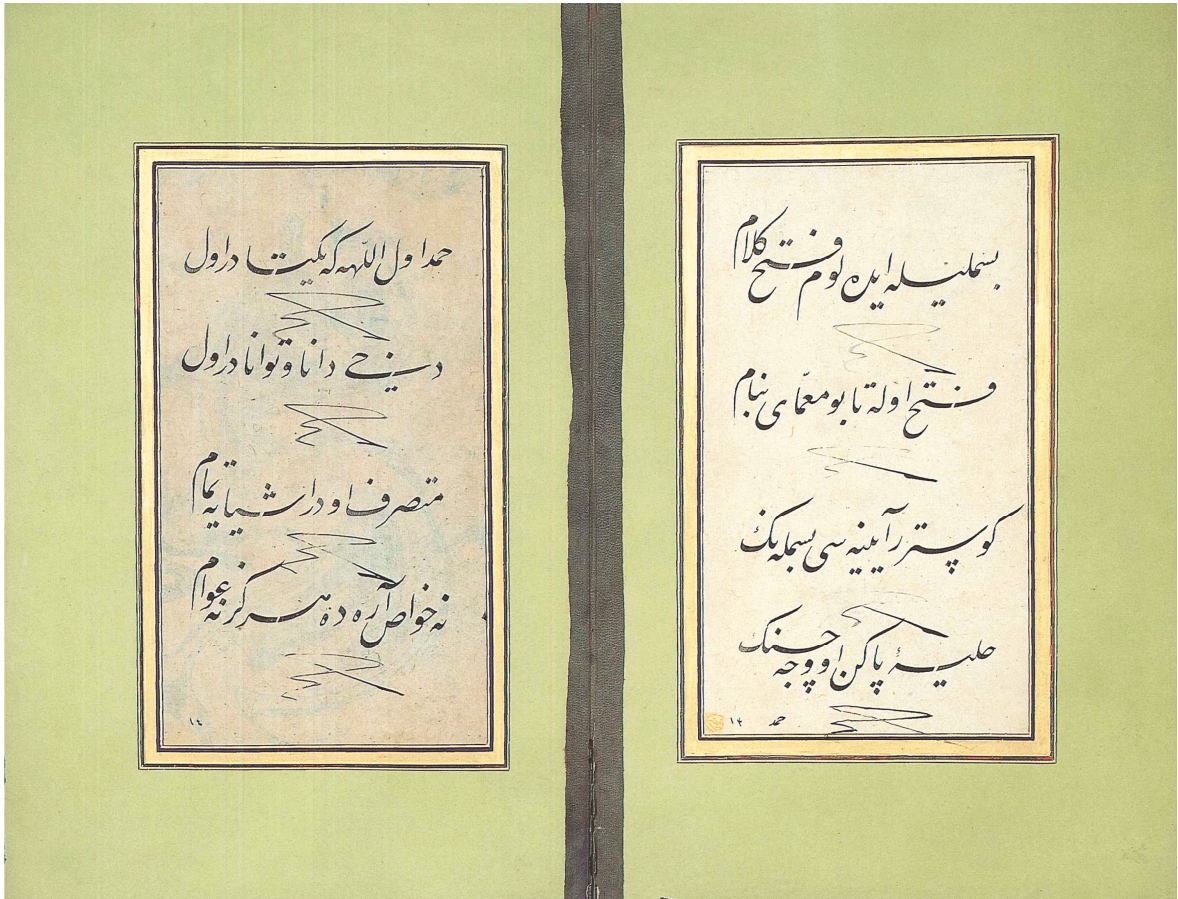 بسمليله ايده لوم فتح كلام
فتح اوله تا بو معمّاى بنام
كوسترر آيينه سى بسمله نك
حليۀ پاكن او وجه حسنك
حمد
١٣
حمد اول اللّهه كه يكتا در اول
دانا و توانا در اول
متصرف او در اشيايه تمام
نه خواص آره ده هرگز نه عوام
١٤